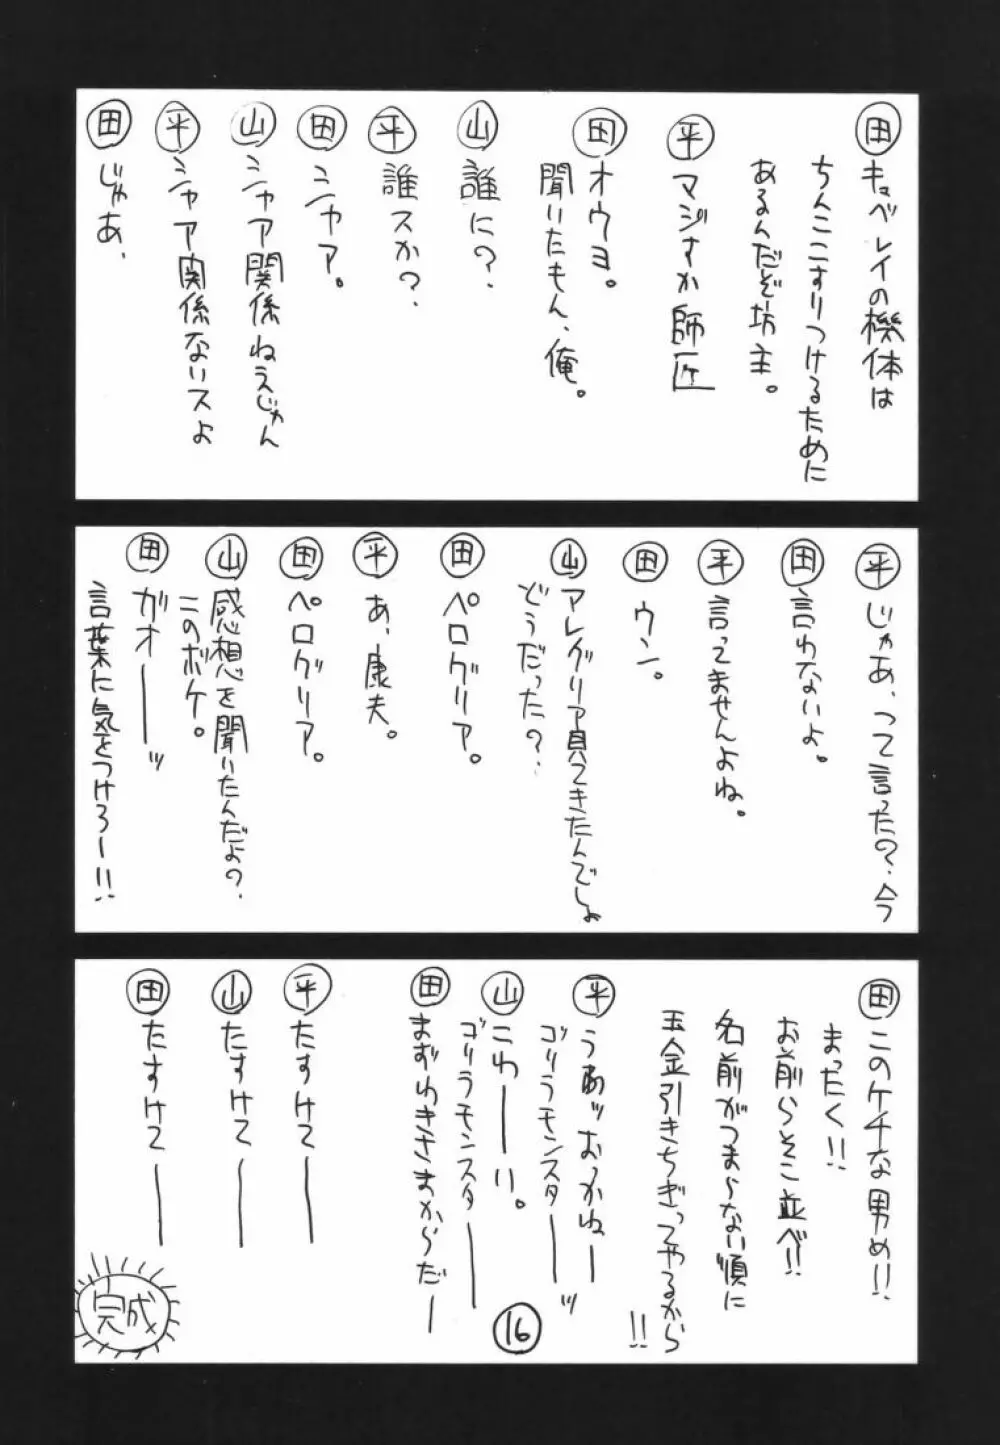 田 キュベレイの機体は
ちんここすりつけるために
あるんだぞ坊主。
平 マジすか師匠
田 オウヨ。
聞いたもん、俺。
山 誰に?
平 誰スか?
田 シャア。
山 シャア関係ねえじゃん
平 シャア関係ないスよ
田 じゃあ、
平 じゃあ、って言った?今
田 言わないよ。
平 言ってませんよね。
田 ウン。
山 アレグリア見てきたんでしょ
どうだった?
田 ペログリア。
平 あ、康夫。
田 ペログリア。
山 感想を聞いたんだよ?
このボケ。
田 ガオーーッ
言葉に気をつけろー!!
田 このケチな男め!!
まったく!!
お前らそこ並べ!!
名前がつまらない順に
玉金引きちぎってやるから
!!
平 うわッおっかねー
ゴリラモンスターーッ
山 こわーーい。
ゴリラモンスターーー
田 まずわきさまからだー
平 たすけてーー
山 たすけてーー
田 たすけてーー
16
完成